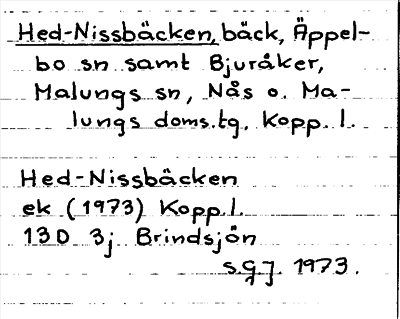 Hed-Nissbäcken, bäck, Äppel-
bo sn samt Bjuråker,
Malungs sn, Nås o. Ma-
lungs doms.tg. Kopp. l.
Hed-Nissbäcken
ek (1973) Kopp.l.
13D 3j Brindsjön
s.g.j. 1973.